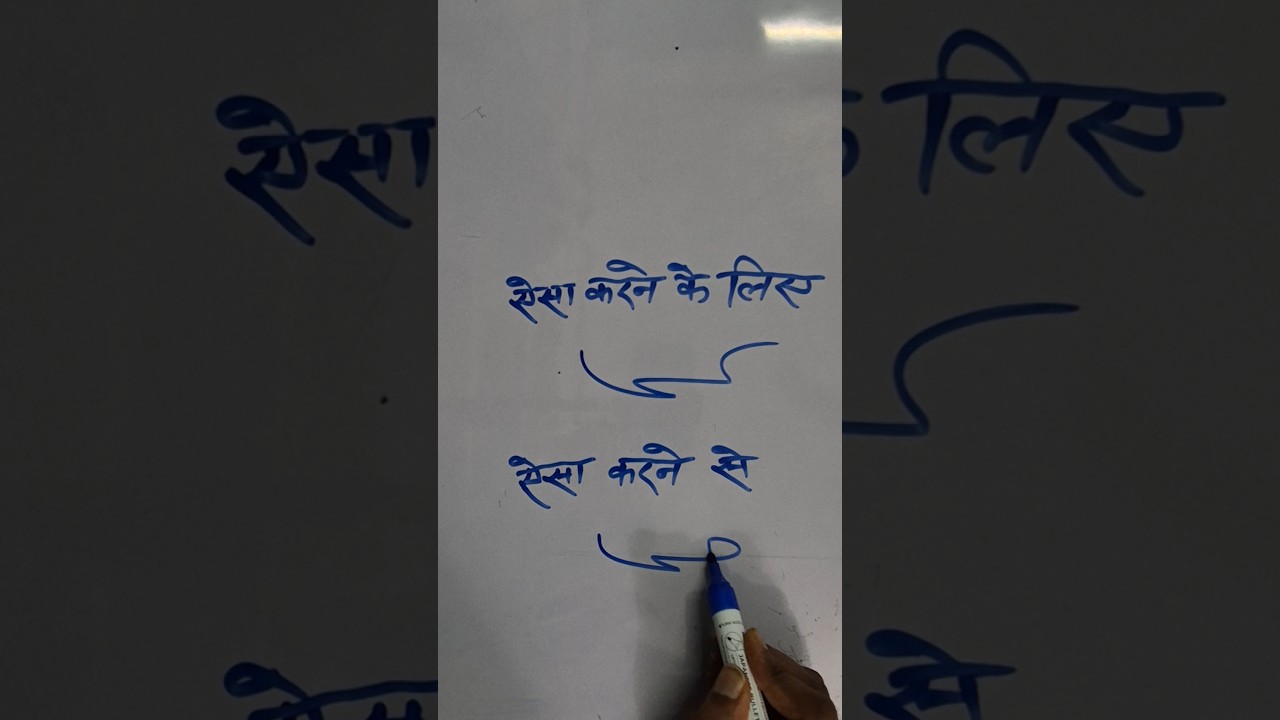 ऐसा करने के लिए
ऐसा करने से